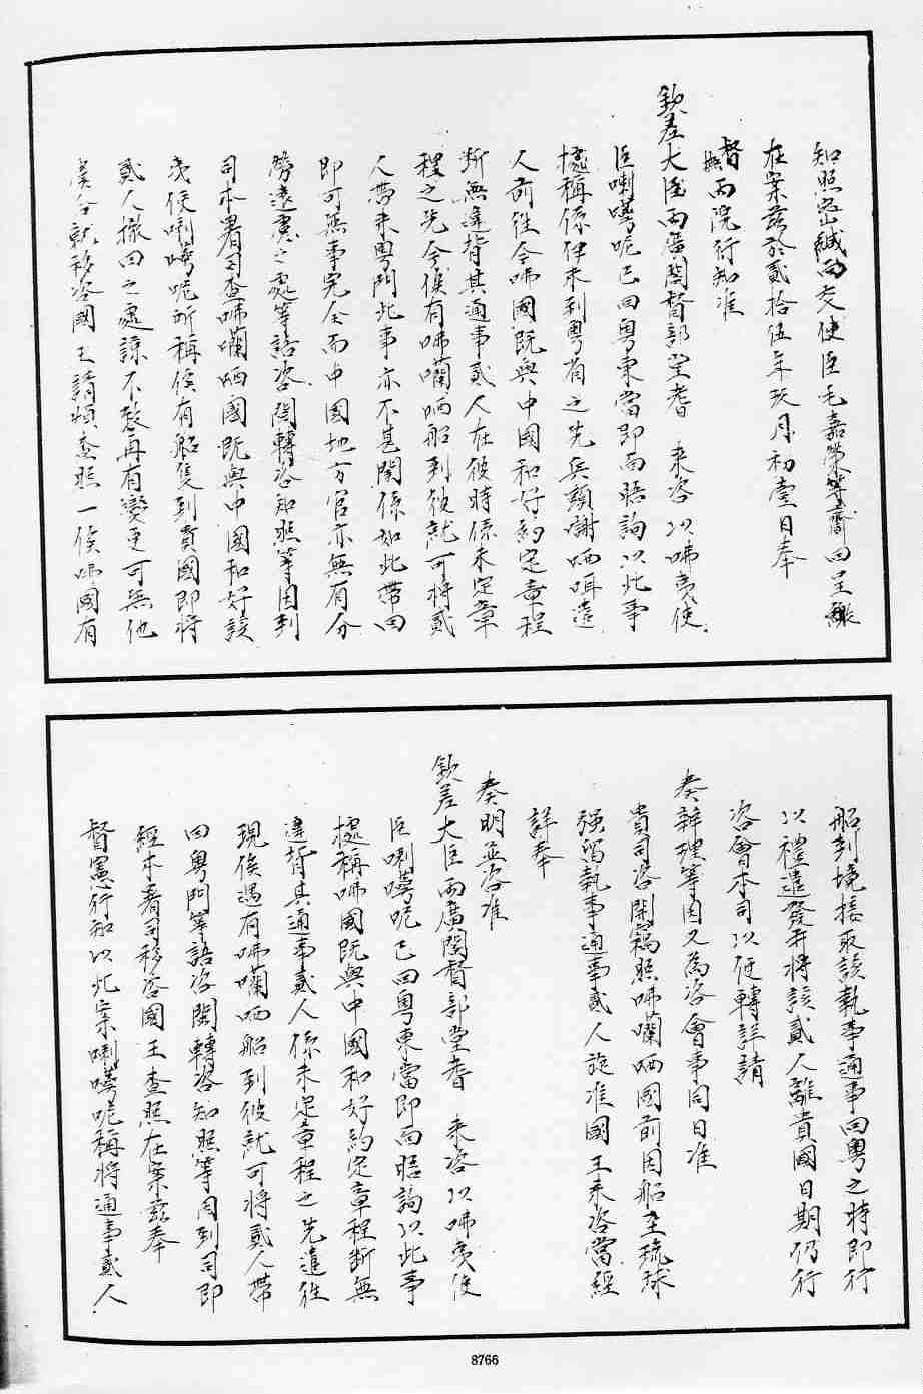 知照密緘面交使臣毛嘉榮等齎回呈繳
在案茲於貳拾伍年玖月初壹日奉
督撫兩院行知准
欽差大臣兩廣閣督部堂耆　來咨以咈夷使
臣喇嘮呢已回粵東當即面晤詢以此事
據稱係伊未到粵省之先兵頭謝哂咡遣
人前往今咈國既與中國和好約定章程
斷無違背其通事貳人在彼時係未定章
程之先今俟有咈囒哂船到彼就可將貳
人帶來粵門此事亦不甚關係如此帶回
即可無事完全而中國地方官亦無有分
勞遠慮之處等語咨閩轉咨知照等因到
司本署司查咈囒哂國既與中國和好該
夷使喇嘮呢所稱俟有船隻到貴國即將
貳人撤回之處諒不致再有變更可無他
虞合就移咨國王請煩查照一俟咈國有
船到境接取該執事通事回粵之時即行
以禮遣發并將該貳人離貴國日期仍行
咨會本司以便轉詳請
奏辦理等因又為咨會事同日准
貴司咨開竊照咈囒哂國前因船至琉球
強留執事通事貳人旋准國王來咨當經
詳奉
奏明並咨准
欽差大臣兩廣閣督部堂耆　來咨以咈夷使
臣喇嘮呢已回粵東當即面晤詢以此事
據稱咈國既與中國和好約定章程斷無
違背其通事貳人係未定章程之先進往
現俟遇有咈囒哂船到彼就可將貳人帶
回粵門等語咨閩轉咨知照等因到司即
經本署司移咨國王查照在案茲奉
督憲行知以此案喇嘮呢稱將通事貳人
8766